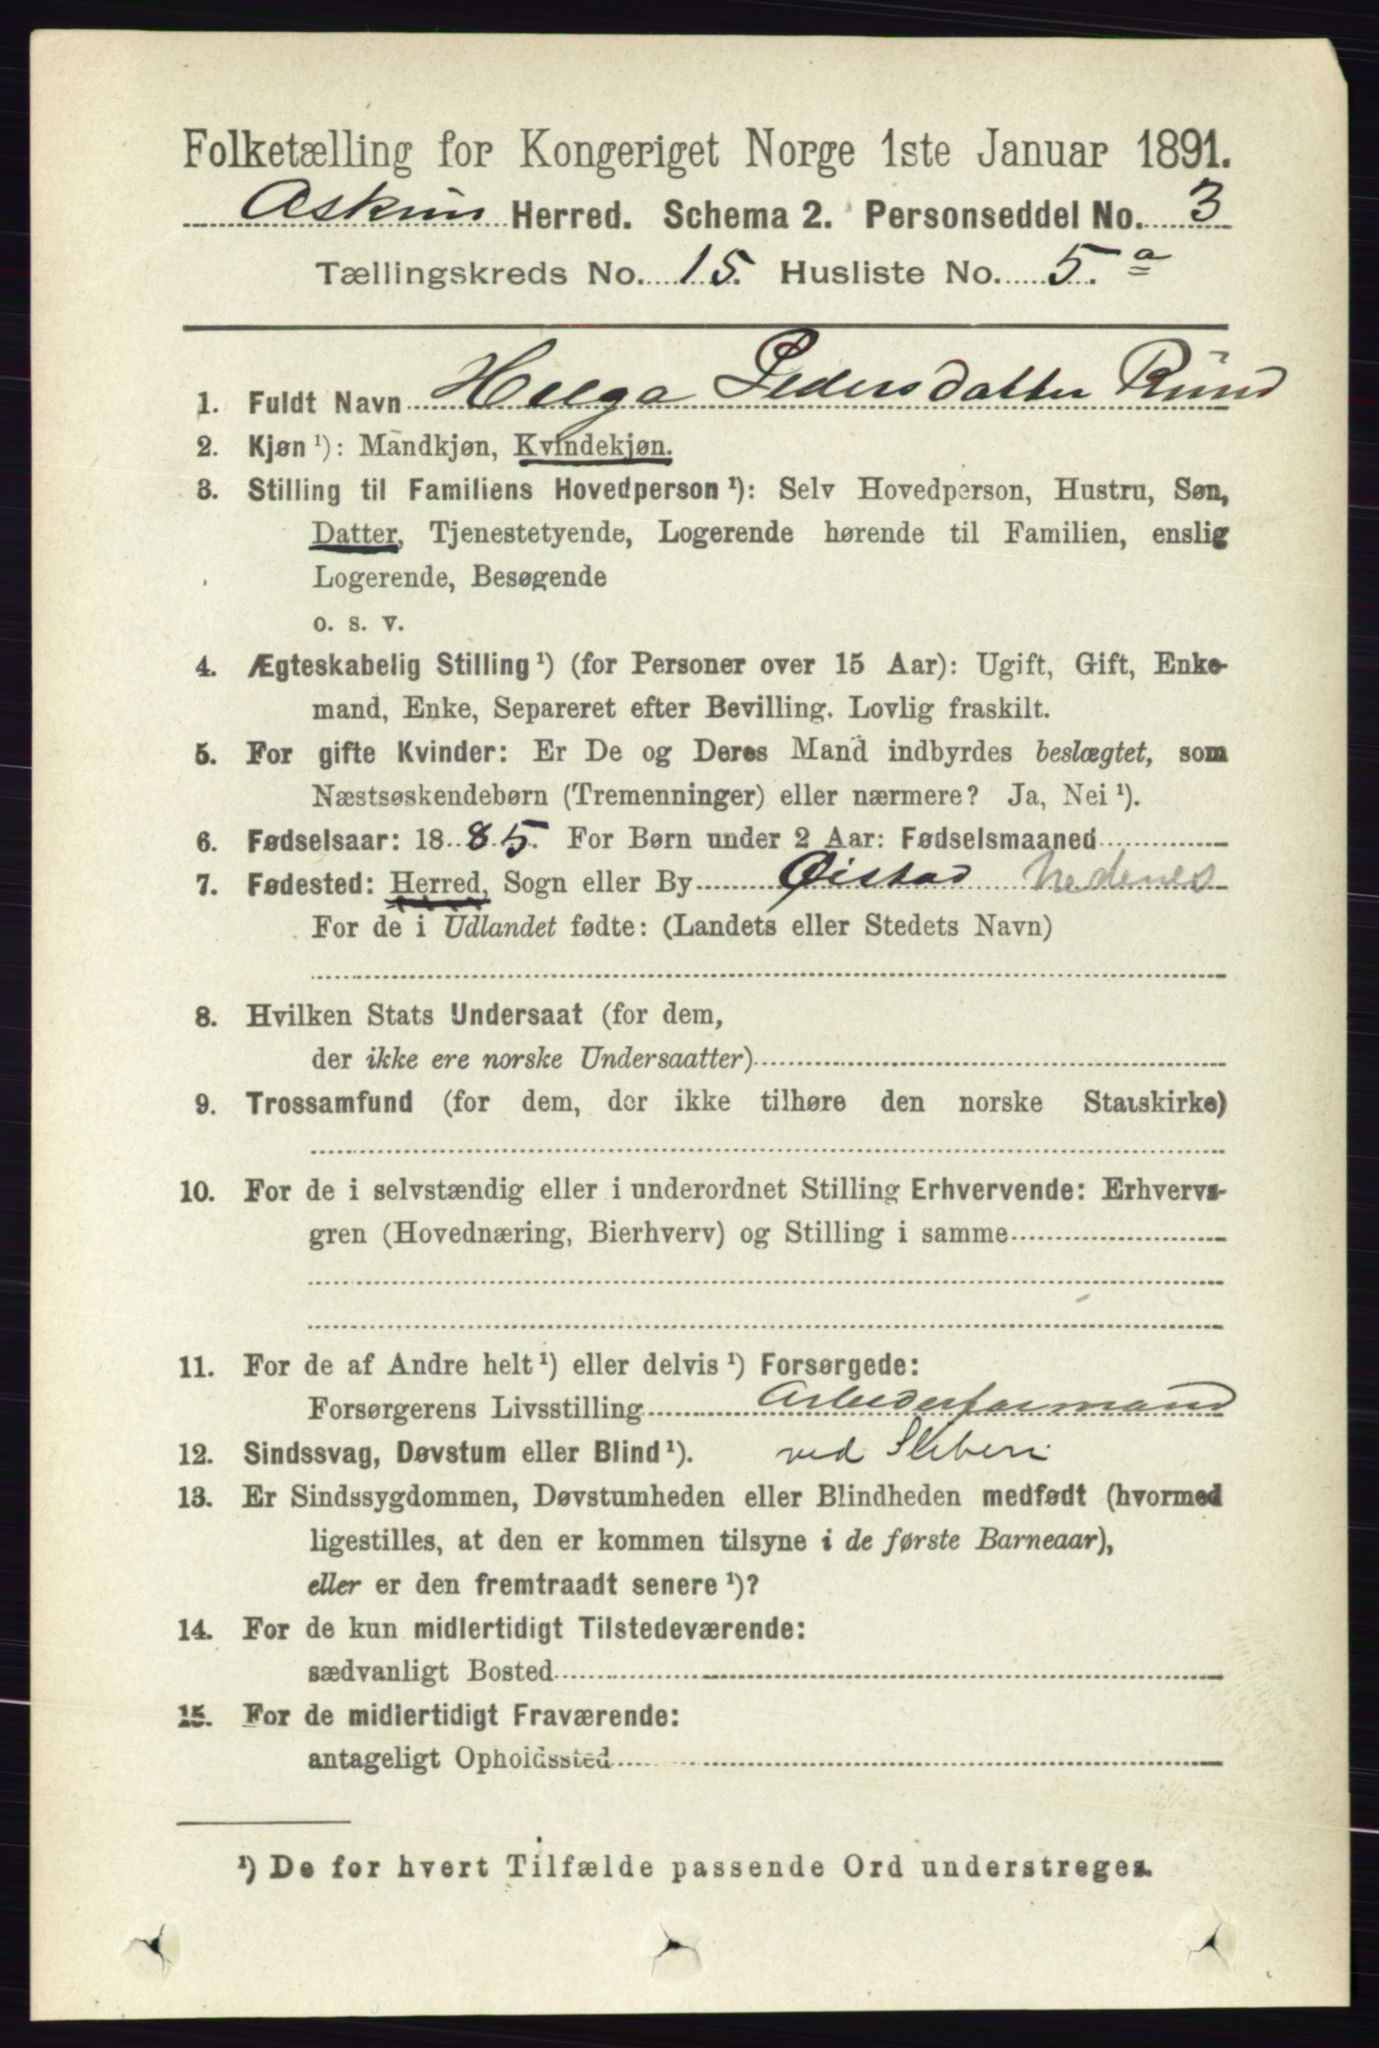 Folketælling for Kongeriget Norge 1ste Januar 1891.
Askim Herred. Schema 2. Personseddel No. 3
Tællingskreds No. 15. Husliste No. 5.a
1. Fuldt Navn Helga Pedersdatter Rund
2. Kjøn ¹): Mandkjøn, Kvindekjøn.
3. Stilling til Familiens Hovedperson ¹): Selv Hovedperson, Hustru, Søn,
Datter, Tjenestetyende, Logerende hørende til Familien, enslig
Logerende, Besøgende
o. s. v.
4. Ægteskabelig Stilling ¹) (for Personer over 15 Aar): Ugift, Gift, Enke-
mand, Enke, Separeret efter Bevilling. Lovlig fraskilt.
5. For gifte Kvinder: Er De og Deres Mand indbyrdes beslægtet, som
Næstsøskendebørn (Tremenninger) eller nærmere? Ja, Nei ¹).
6. Fødselsaar: 1885. For Børn under 2 Aar: Fødselsmaaned
7. Fødested: Herred, Sogn eller By Øistad Nedenes
For de i Udlandet fødte: (Landets eller Stedets Navn)
8. Hvilken Stats Undersaat (for dem,
der ikke ere norske Undersaatter)
9. Trossamfund (for dem, der ikke tilhøre den norske Statskirke)
10. For de i selvstændig eller i underordnet Stilling Erhvervende: Erhvervs-
gren (Hovednæring, Bierhverv) og Stilling i samme
11. For de af Andre helt ¹) eller delvis ¹) Forsørgede:
Forsørgerens Livsstilling Arbeidsformand
12. Sindssvag, Døvstum eller Blind ¹). ved Sliberi
13. Er Sindssygdommen, Døvstumheden eller Blindheden medfødt (hvormed
ligestilles, at den er kommen tilsyne i de første Barneaar),
eller er den fremtraadt senere ¹)?
14. For de kun midlertidigt Tilstedeværende:
sædvanligt Bosted
15. For de midlertidigt Fraværende:
antageligt Opholdssted
¹) De for hvert Tilfælde passende Ord understreges.